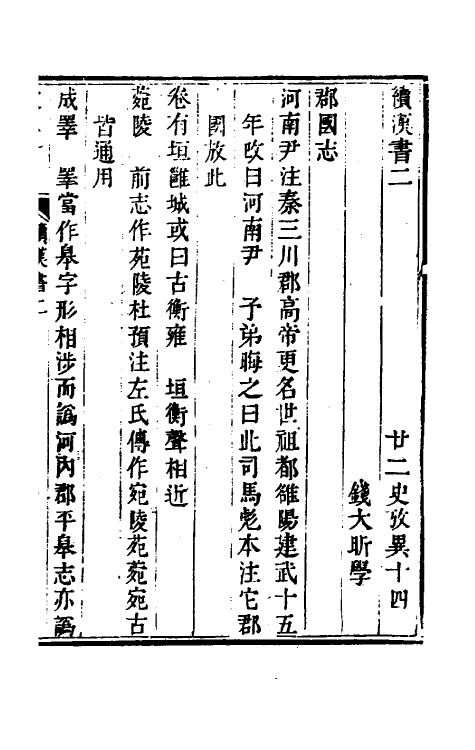 續漢書二　廿二史攷異十四
錢大昕學
郡國志
河南尹注秦三川郡高帝更名世祖都雒陽建武十五
年改曰河南尹　子弟晦之曰此司馬彪本注它郡
國放此
卷有垣雝城或曰古衡雍　垣衡聲相近
菀陵　前志作苑陵杜預注左氏傳作宛陵苑菀宛古
皆通用
成睪　睪當作皋字形相涉而譌河內郡平皋志亦譌
續漢書二